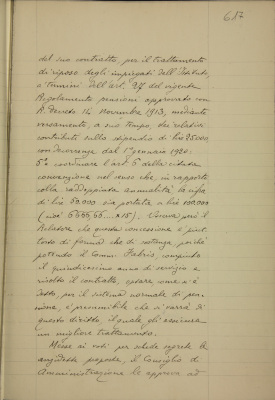 687
del suo contratto, per il trattamento
di riposo degli impiegati dell'Istituto,
a termini dell'art. 27 del vigente
Regolamento pensioni approvato con
R. Decreto 14 Novembre 1913, mediante
versamento, a suo tempo, dei relativi
contributi sullo stipendio di lire 25000
con decorrenza dal 1° gennaio 1920:
5° coordinare l'art. 5 della citata
convenzione nel senso che, in rapporto
colla raddoppiata annualità la cifra
di lire 50.000 sia portata a lire 100.000
però il
Relatore che questa concessione è piut-
tosto di forma che di sostanza, poichè
potendo il Comm. Fabris, compiuto
il quindicesimo anno di servizio e
risolto il contratto, optare come è
detto, per il sistema normale di pen-
sione, è presumibile che si varrà di
questo diritto, il quale gli assicura
un migliore trattamento.
Messe ai voti per scheda segreta le
anzidette proposte, il Consiglio di
Amministrazione le approva ad